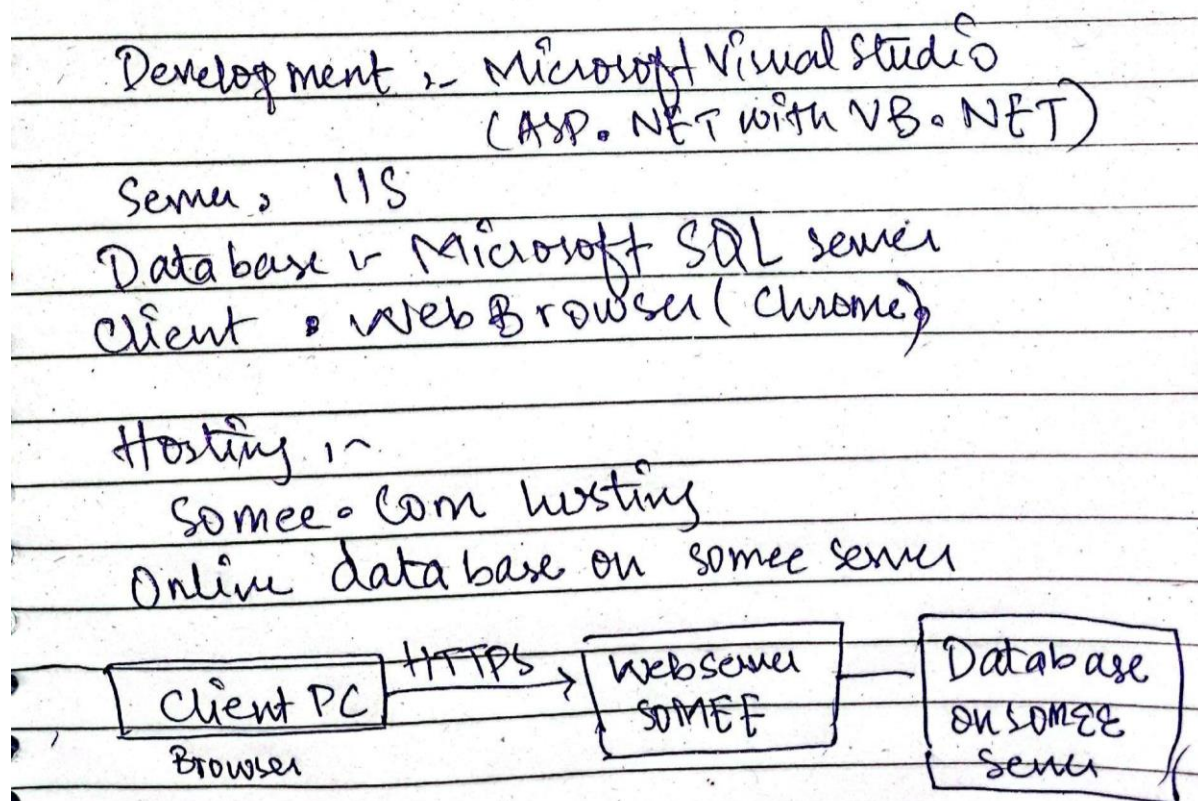 Development :- Microsoft Visual Studio
(ASP. NET with VB. NET)
Server : IIS
Database :- Microsoft SQL server
Client : Web Browser (Chrome)
Hosting :-
Somee.Com hosting
Online database on somee server
Client PC
Browser
HTTPS
Webserver
SOMEE
Database
on SOMEE
Server